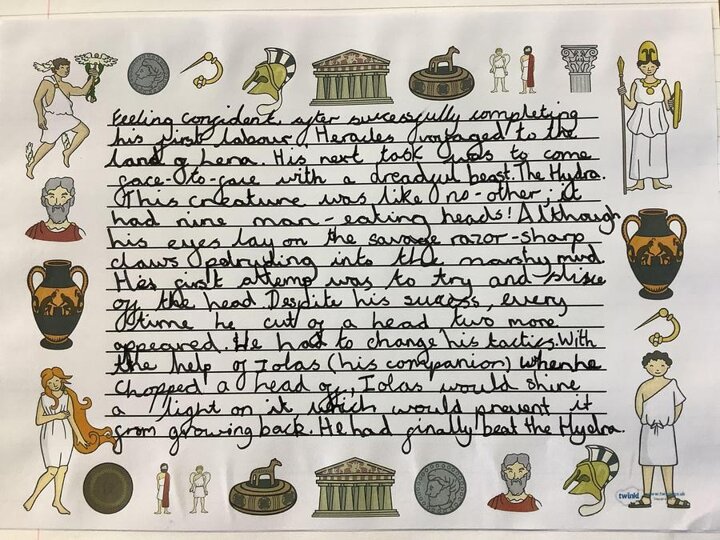 Feeling confident, after sucsessfully completing
his first labour, Heracles voyaged to the
land of Lerna. His next task was to come
face-to-face with a dreadful beast. The Hydra.
This creature was like no-other, it
had nine man-eating heads! Although
his eyes lay on the savage razor-sharp
claws potruding into the marshy mud
His first attemp was to try and slice
of the head. Despite his sucsess, every
time he cut of a head two more
appeared. He had to change his tactics. With
the help of Iolas (his companion) when he
chopped a head of, Iolas would shine
a light on it which would prevent it
from growing back. He had finally beat the Hydra.
twinkl